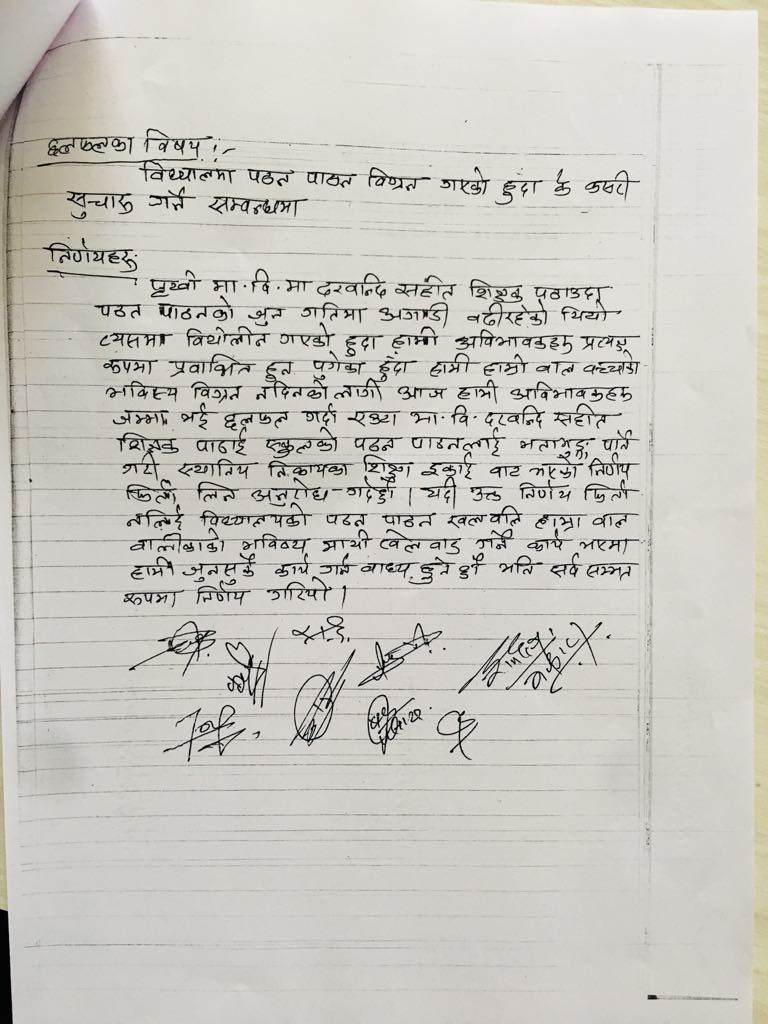 छलफलका विषय :-
विध्यालमा पठन पाठन विग्रन गएको हुदा के कसरी
सुचारु गर्ने सम्वन्धमा
निर्णयहरु:
पृथ्वी मा. वि. मा दरवन्दि सहीत शिक्षक पठाउदा
पठन पाठनको जुन गतिमा अगाडी वढीरहेको थियो
त्यसमा विथोलीन गएको हुदा हामी अविभावकहरु प्रत्यक्ष
रुपमा प्रवाभित हुन पुगेका हुँदा हामी हाम्रो वाल वच्चाको
भविस्य विग्रन नदिनको लागी आज हामी अविभावकहरु
जम्मा भई छलफल गर्दा एउटा मा. वि. दरवन्दि सहीत
शिक्षक पाठाई स्कुलको पठन पाठनलाई भताभुङ्ग पार्ने
गरी स्थानिय निकायका शिक्षा ईकाई वाट भएको निर्णय
फिर्ता लिन अनुरोध गर्दछौं । यदी उक्त निर्णय फिर्ता
नलिई विध्यालयको पठन पाठन खलवलि हाम्रा वाल
वालीकाको भविष्य माथी खेलवाड गर्ने कार्य भएमा
हामी जुनसुकै कार्य गर्न वाध्य हुने छौं भनि सर्व सम्मत
रुपमा निर्णय गरियो ।